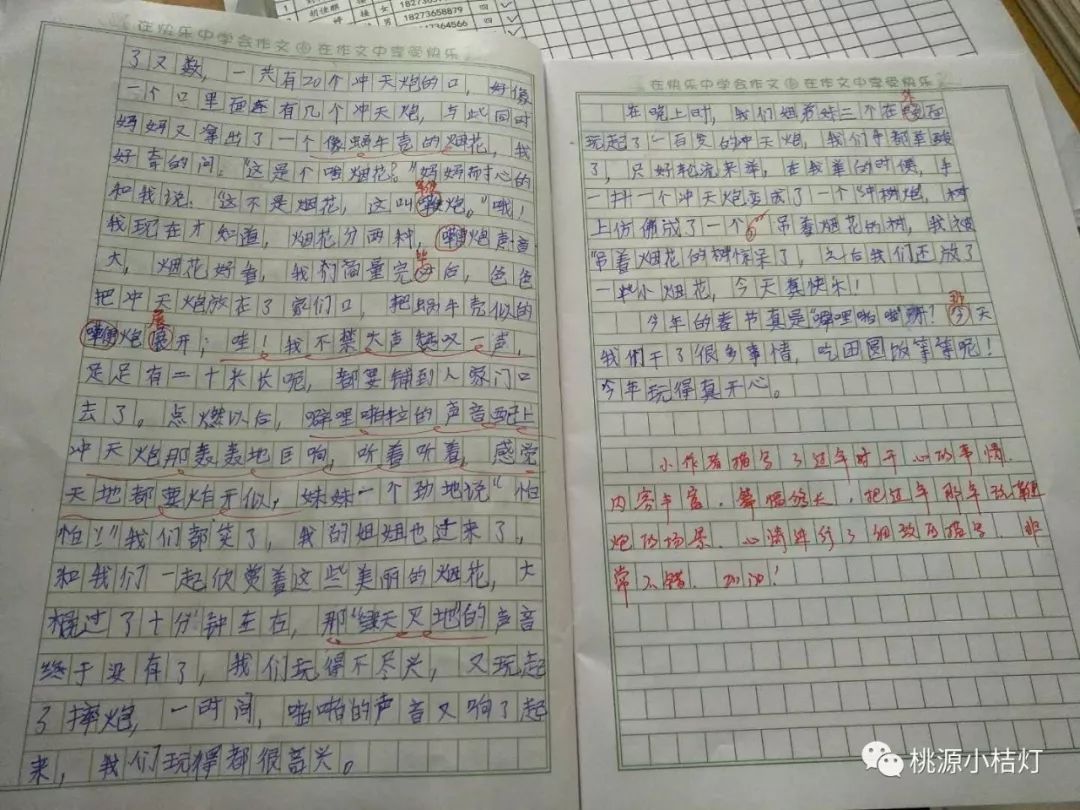 18273658879
在快乐中学会作文 在作文中享受快乐
了又数，一共有20个冲天炮的口，好像
一个口里面还有几个冲天炮，与此同时
妈妈又拿出了一个像蜗牛壳的烟花，我
好奇的问："这是个啥烟花？"妈妈耐心的
和我说："这不是烟花，这叫鞭炮。"哦！
我现在才知道，烟花分两种，炮声音
大，烟花好看，我们商量完毕后，爸爸
把冲天炮放在了家门口，把蜗牛壳似的
炮展开；哇！我不禁大声赞叹一声，
足足有二十米长呢，都要铺到人家门口
去了。点燃以后，噼里啪啦的声音配上
冲天炮那轰轰地巨响，听着听着，感觉
天地都要炸开似，妹妹一个劲地说"怕
怕！"我们都笑了，我的姐姐也过来了，
和我们一起欣赏着这些美丽的烟花，大
概过了十分钟左右，那"惊天灭地"的声音
终于没有了，我们玩得不尽兴，又玩起
了摔炮，一时间，啪啪的声音又响了起
来，我们玩得都很高兴。
在快乐中学会作文 在作文中享受快乐
在晚上时，我们姐弟妹三个在外面
玩起了一百发的冲天炮，我们手都举酸
了，只好轮流来举，在我举的时候，手
一抖一个冲天炮变成了一个"冲树炮，树
上仿佛成了一个"吊着烟花的树，我被
"吊着烟花的树惊呆了，之后我们还放了
一些小烟花，今天真快乐！
今年的春节真是"噼里啪啦"呀？那天
我们干了很多事情，吃团圆饭等等呢！
今年玩得真开心。
小作者描写了过年时开心的事情.
内容丰富.篇幅够长.把过年那年放鞭
炮的场景.心情进行了细致的描写.非
常不错.加油！
桃源小桔灯